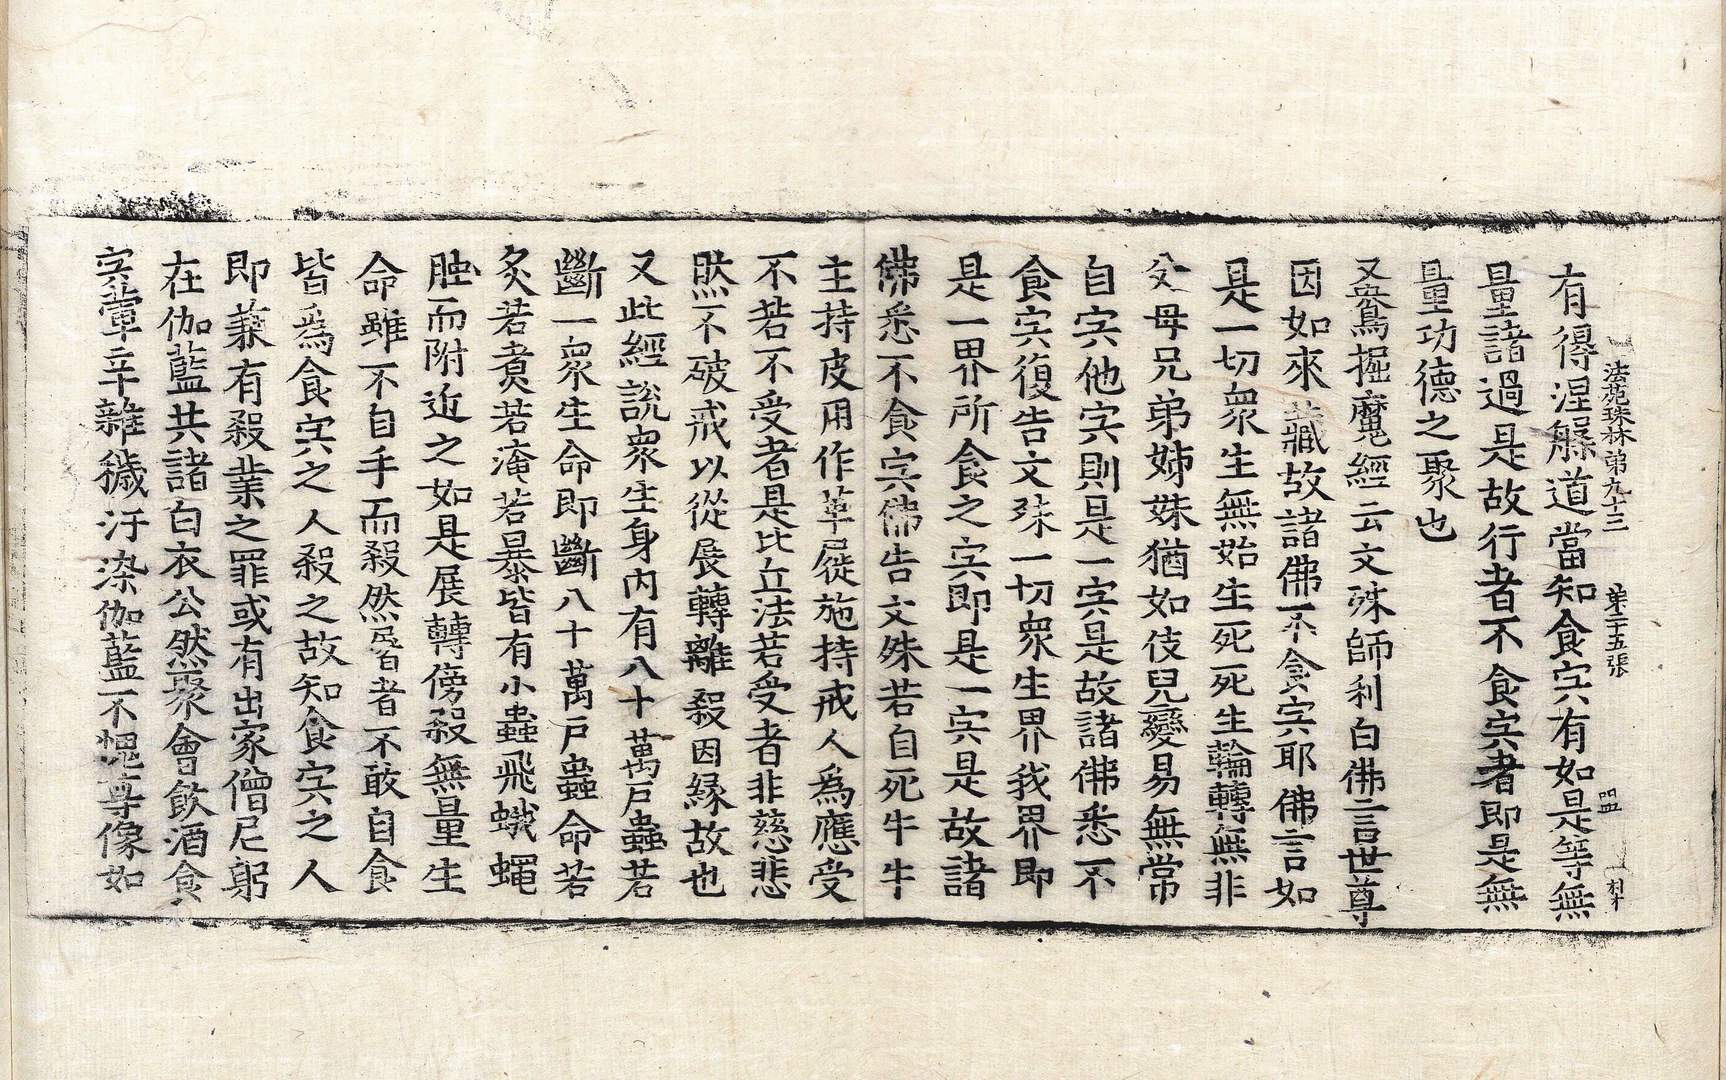 法苑珠林第九十三 第二十五張 盟
有得涅槃道當知食宍有如是等無
量諸過是故行者不食宍者即是無
量功德之聚也
又鴦掘魔經云文殊師利白佛言世尊
因如來藏故諸佛不食宍耶佛言如
是一切衆生無始生死死生輪轉無非
父母兄弟姊妹猶如伎兒變易無常
自宍他宍則是一宍是故諸佛悉不
食宍復告文殊一切衆生界我界即
是一界所食之宍即是一宍是故諸
佛悉不食宍佛告文殊若自死牛牛
主持皮用作革屣施持戒人爲應受
不若不受者是比丘法若受者非慈悲
然不破戒以從展轉離殺因縁故也
又此經説衆生身內有八十萬户蟲若
斷一衆生命即斷八十萬户蟲命若
炙若煑若淹若暴皆有小蟲飛蛾蠅
蛆而附近之如是展轉傍殺無量生
命雖不自手而殺然屠者不敢自食
皆爲食宍之人殺之故知食宍之人
即兼有殺業之罪或有出家僧尼躬
在伽藍共諸白衣公然聚會飲酒食
宍葷辛雜穢汙染伽藍不愧尊像如